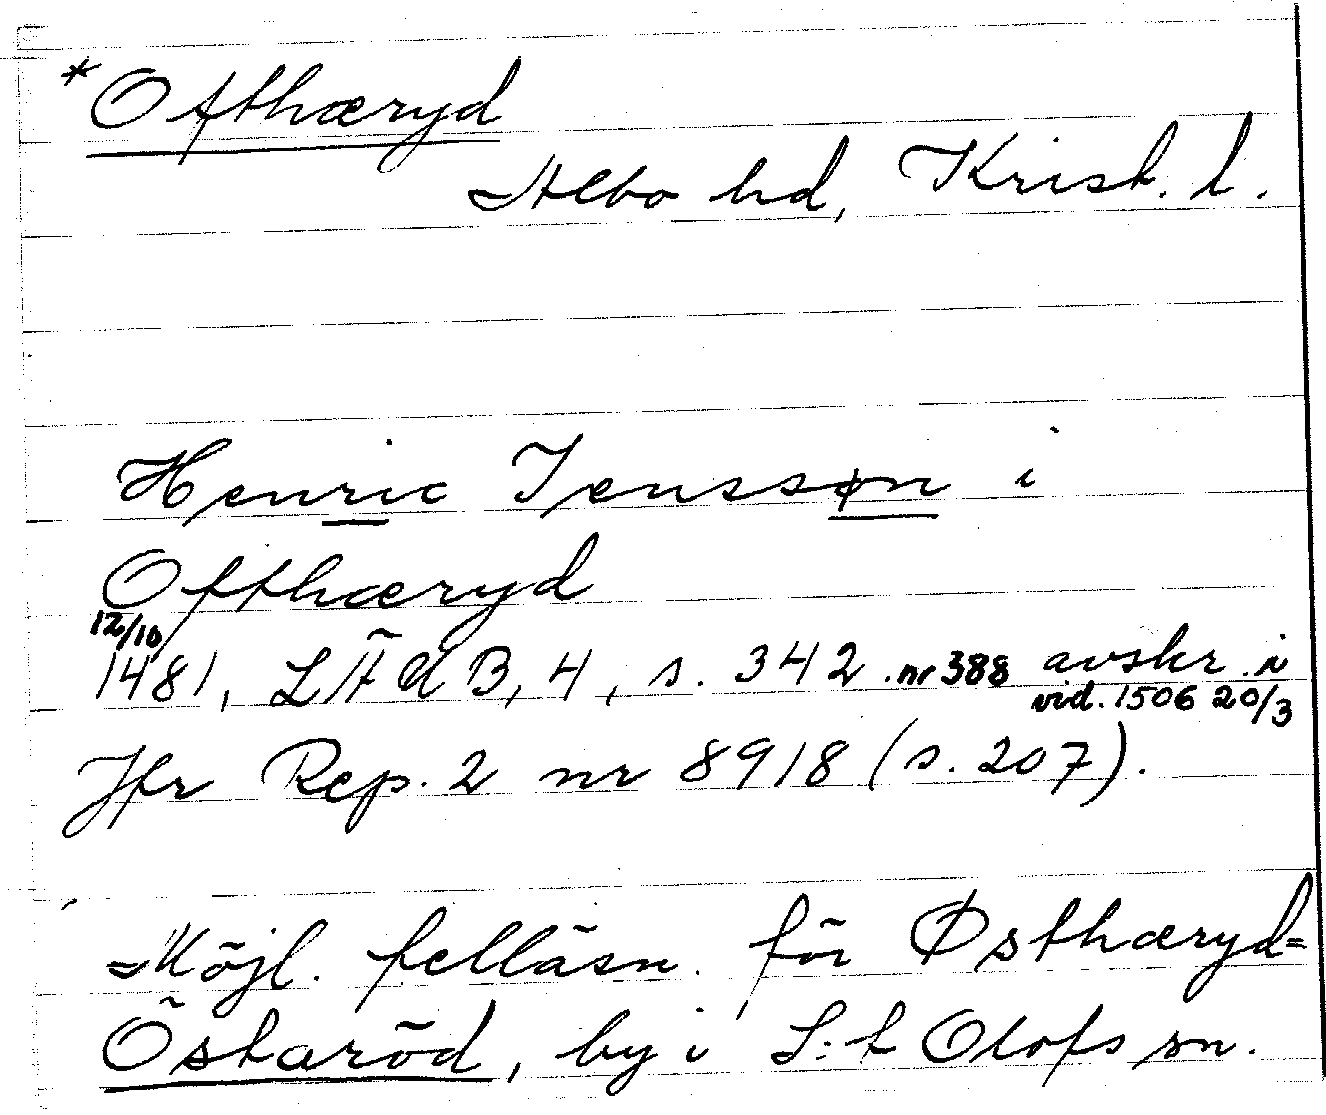 *Ofthæryd
Albo hd, Krist. l.
Henric Jenssøn i
Ofthæryd
12/10
1481, LÄUB, 4, s. 342 . nr 388 avskr. i
vid. 1506 20/3
Jfr Rep. 2 nr 8918 (s. 207).
Möjl. felläsn. för Østhæryd=
Östaröd, by i S:t Olofs sn.